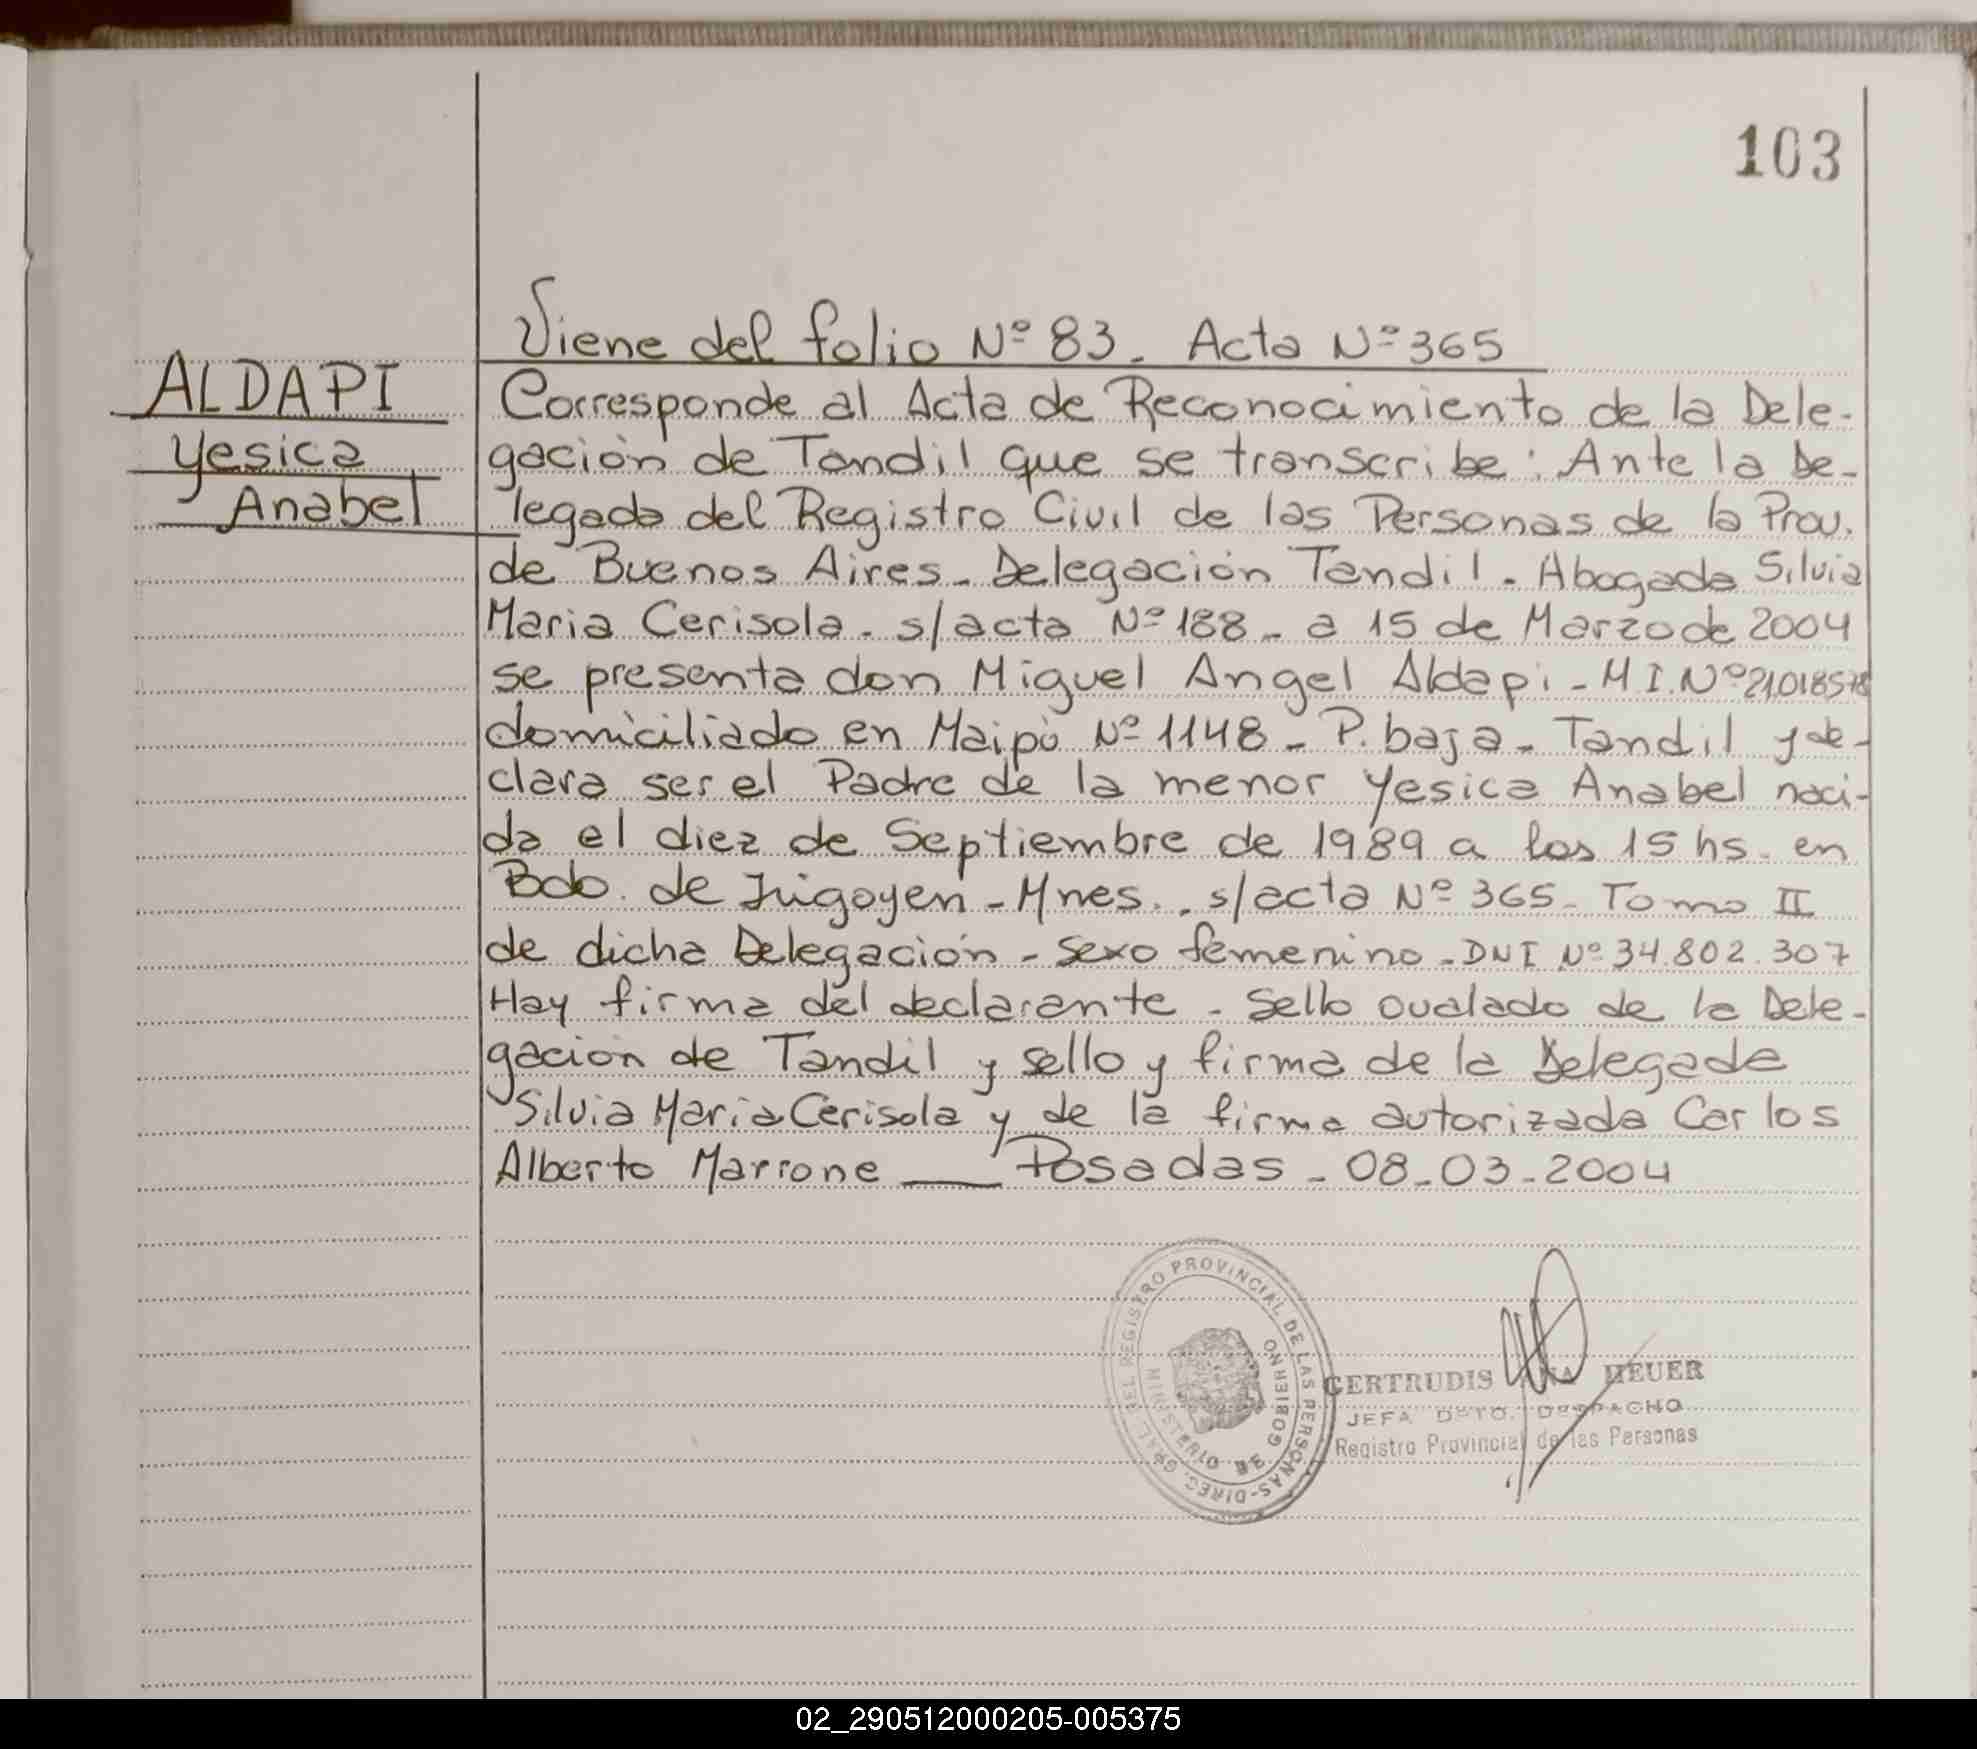 103
Viene del folio Nº 83 - Acta Nº 365
ALDAPI
Yesica
Anabel
Corresponde al Acta de Reconocimiento de la Dele-
gación de Tandil que se transcribe: Ante la De-
legada del Registro Civil de las Personas de la Prov.
de Buenos Aires - Delegación Tandil - Abogada Silvia
Maria Cerisola - s/acta Nº 188 - a 15 de Marzo de 2004
se presenta don Miguel Angel Aldapi - M I. Nº 21.018578
domiciliado en Maipú Nº 1148 - P. baja - Tandil y de-
clara ser el Padre de la menor Yesica Anabel naci-
da el diez de Septiembre de 1989 a las 15 hs. en
Bdo. de Irigoyen - Mnes. - s/acta Nº 365 - Tomo II
de dicha Delegación - Sexo femenino - DNI Nº 34.802.307
Hay firma del declarante - Sello ovalado de la Dele-
gación de Tandil y sello y firma de la Delegada
Silvia Maria Cerisola y de la firma autorizada Carlos
Alberto Marrone ___ Posadas - 08-03-2004
DIREC. GRAL. DEL REGISTRO PROVINCIAL DE LAS PERSONAS
MINISTERIO DE GOBIERNO
GERTRUDIS HEUER
JEFA DPTO. DESPACHO
Registro Provincial de las Personas
02_290512000205-005375